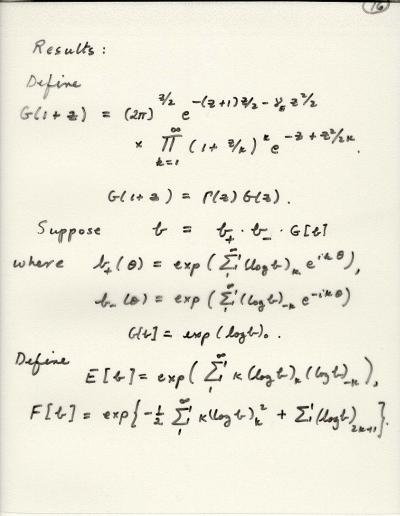 16
Results:
Define
G(1+z) = (2π)^{z/2} e^{-(z+1)z/2 - γ_E z²/2}
× ∏_{k=1}^{∞} (1+z/k)^k e^{-z+z²/2k}.
G(1+z) = Γ(z) G(z).
Suppose b = b₊ · b₋ · G[b]
where b₊(θ) = exp(∑_{1}^{∞} (log b)_k e^{ikθ}),
b₋(θ) = exp(∑_{1}^{∞} (log b)_{-k} e^{-ikθ})
G[b] = exp(log b)₀.
Define
E[b] = exp(∑_{1}^{∞} k(log b)_k (log b)_{-k}),
F[b] = exp{-½ ∑_{1}^{∞} k(log b)_k² + ∑(log b)_{2k+1}}.